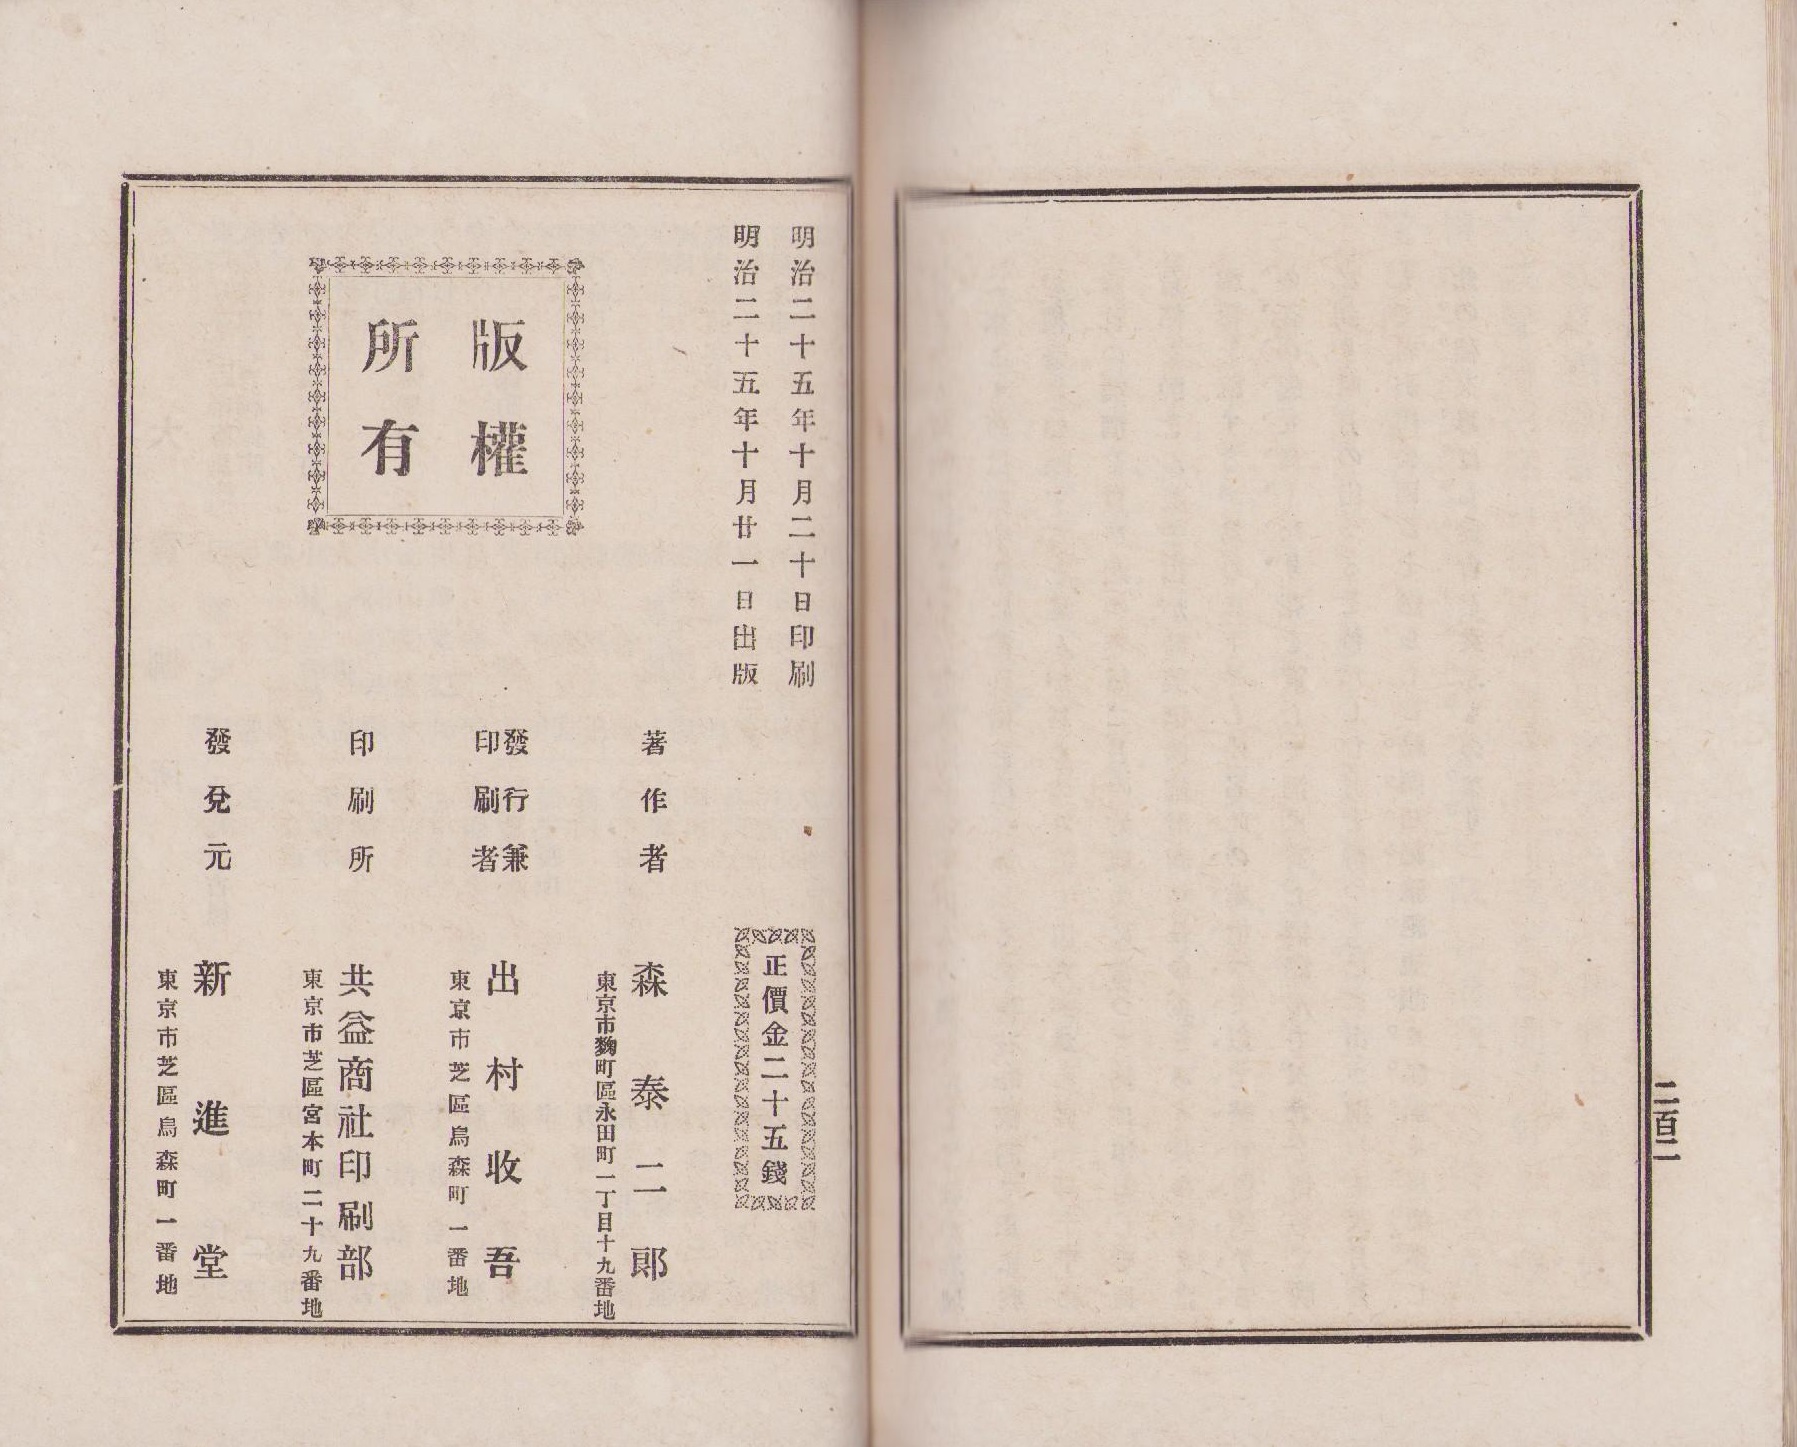 二百二
明治二十五年十月二十日印刷
明治二十五年十月廿一日出版
版權
所有
正價金二十五錢
著作者
森泰二郎
東京市麴町區永田町一丁目十九番地
發行兼
印刷者
出村收吾
東京市芝區烏森町一番地
印刷所
共益商社印刷部
東京市芝區宮本町二十九番地
發兌元
新進堂
東京市芝區烏森町一番地